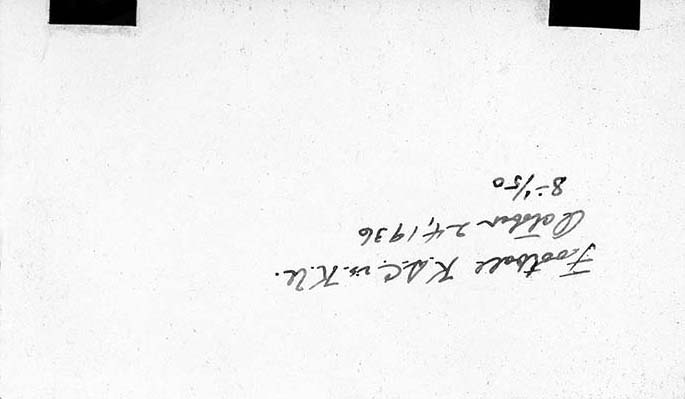 Football K.S.C. vs. K.U.
October 24, 1936
8-1/50